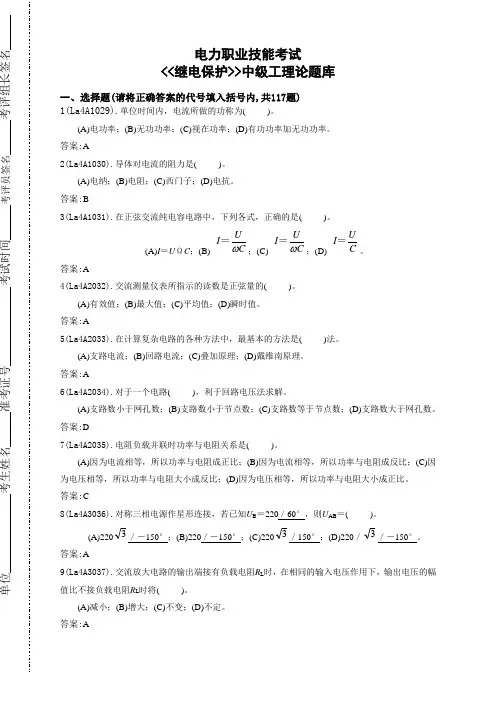 电力职业技能考试
<<继电保护>>中级工理论题库
一、选择题(请将正确答案的代号填入括号内,共117题)
1(La4A1029).单位时间内，电流所做的功称为(      )。
(A)电功率；(B)无功功率；(C)视在功率；(D)有功功率加无功功率。
答案:A
2(La4A1030).导体对电流的阻力是(      )。
(A)电纳；(B)电阻；(C)西门子；(D)电抗。
答案:B
3(La4A1031).在正弦交流纯电容电路中，下列各式，正确的是(      )。
(A)I＝UὼC；(B) I＝U/ωC；(C) I＝U/ωC；(D) I＝U/C。
答案:A
4(La4A2032).交流测量仪表所指示的读数是正弦量的(      )。
(A)有效值；(B)最大值；(C)平均值；(D)瞬时值。
答案:A
5(La4A2033).在计算复杂电路的各种方法中，最基本的方法是(      )法。
(A)支路电流；(B)回路电流；(C)叠加原理；(D)戴维南原理。
答案:A
6(La4A2034).对于一个电路(      )，利于回路电压法求解。
(A)支路数小于网孔数；(B)支路数小于节点数；(C)支路数等于节点数；(D)支路数大于网孔数。
答案:D
7(La4A2035).电阻负载并联时功率与电阻关系是(      )。
(A)因为电流相等，所以功率与电阻成正比；(B)因为电流相等，所以功率与电阻成反比；(C)因
为电压相等，所以功率与电阻大小成反比；(D)因为电压相等，所以功率与电阻大小成正比。
答案:C
8(La4A3036).对称三相电源作星形连接，若已知UB＝220/60°，则UAB＝(      )。
(A)220√3/－150°；(B)220/－150°；(C)220√3/150°；(D)220/√3/－150°。
答案:A
9(La4A3037).交流放大电路的输出端接有负载电阻RL时，在相同的输入电压作用下，输出电压的幅
值比不接负载电阻RL时将(      )。
(A)减小；(B)增大；(C)不变；(D)不定。
答案:A
单位 考生姓名 准考证号 考试时间 考评员签名 考评组长签名